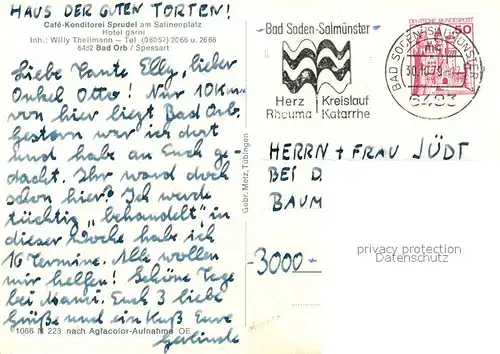 HAUS DER GUTEN TORTEN!
Café-Konditorei Sprudel am Salinenplatz
Hotel garni
Inh.: Willy Theilmann - Tel (06052) 2066 u. 2666
6482 Bad Orb / Spessart
Liebe Tante Elly, lieber
Onkel Otto! Nur 10km
von hier liegt Bad Orb.
Gestern war ich dort
und habe an Euch ge-
dacht. Ihr ward doch
schon hier? Ich werde
tüchtig "behandelt", in
dieser Woche habe ich
16 Termine. Alle wollen
mir helfen! Schöne Tage
bei Mami. Euch 3 liebe
Grüße und ein Kuß Eure
Gerlinde
1066 N 223 nach Agfacolor-Aufnahme OE
Gebr. Metz, Tübingen
Bad Soden-Salmünster
Herz Kreislauf
Rheuma Katarrhe
BAD SODEN-SALMÜNSTER
30.10.79
6483
DEUTSCHE BUNDESPOST
50
HERRN + FRAU JÜDT
BEI D
BAUM
-3000-
privacy protection
Datenschutz